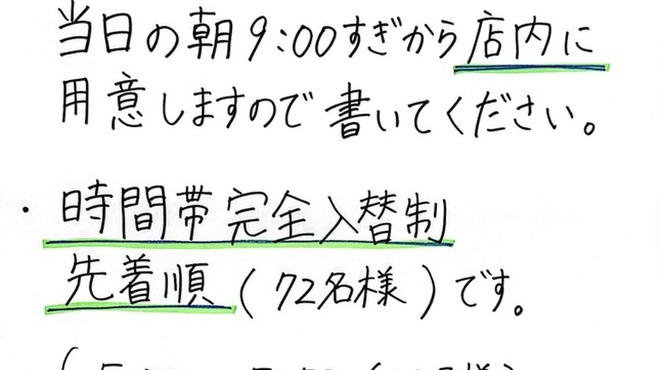 当日の朝9:00すぎから店内に
用意しますので書いてください。
・時間帯完全入替制
先着順(72名様)です。